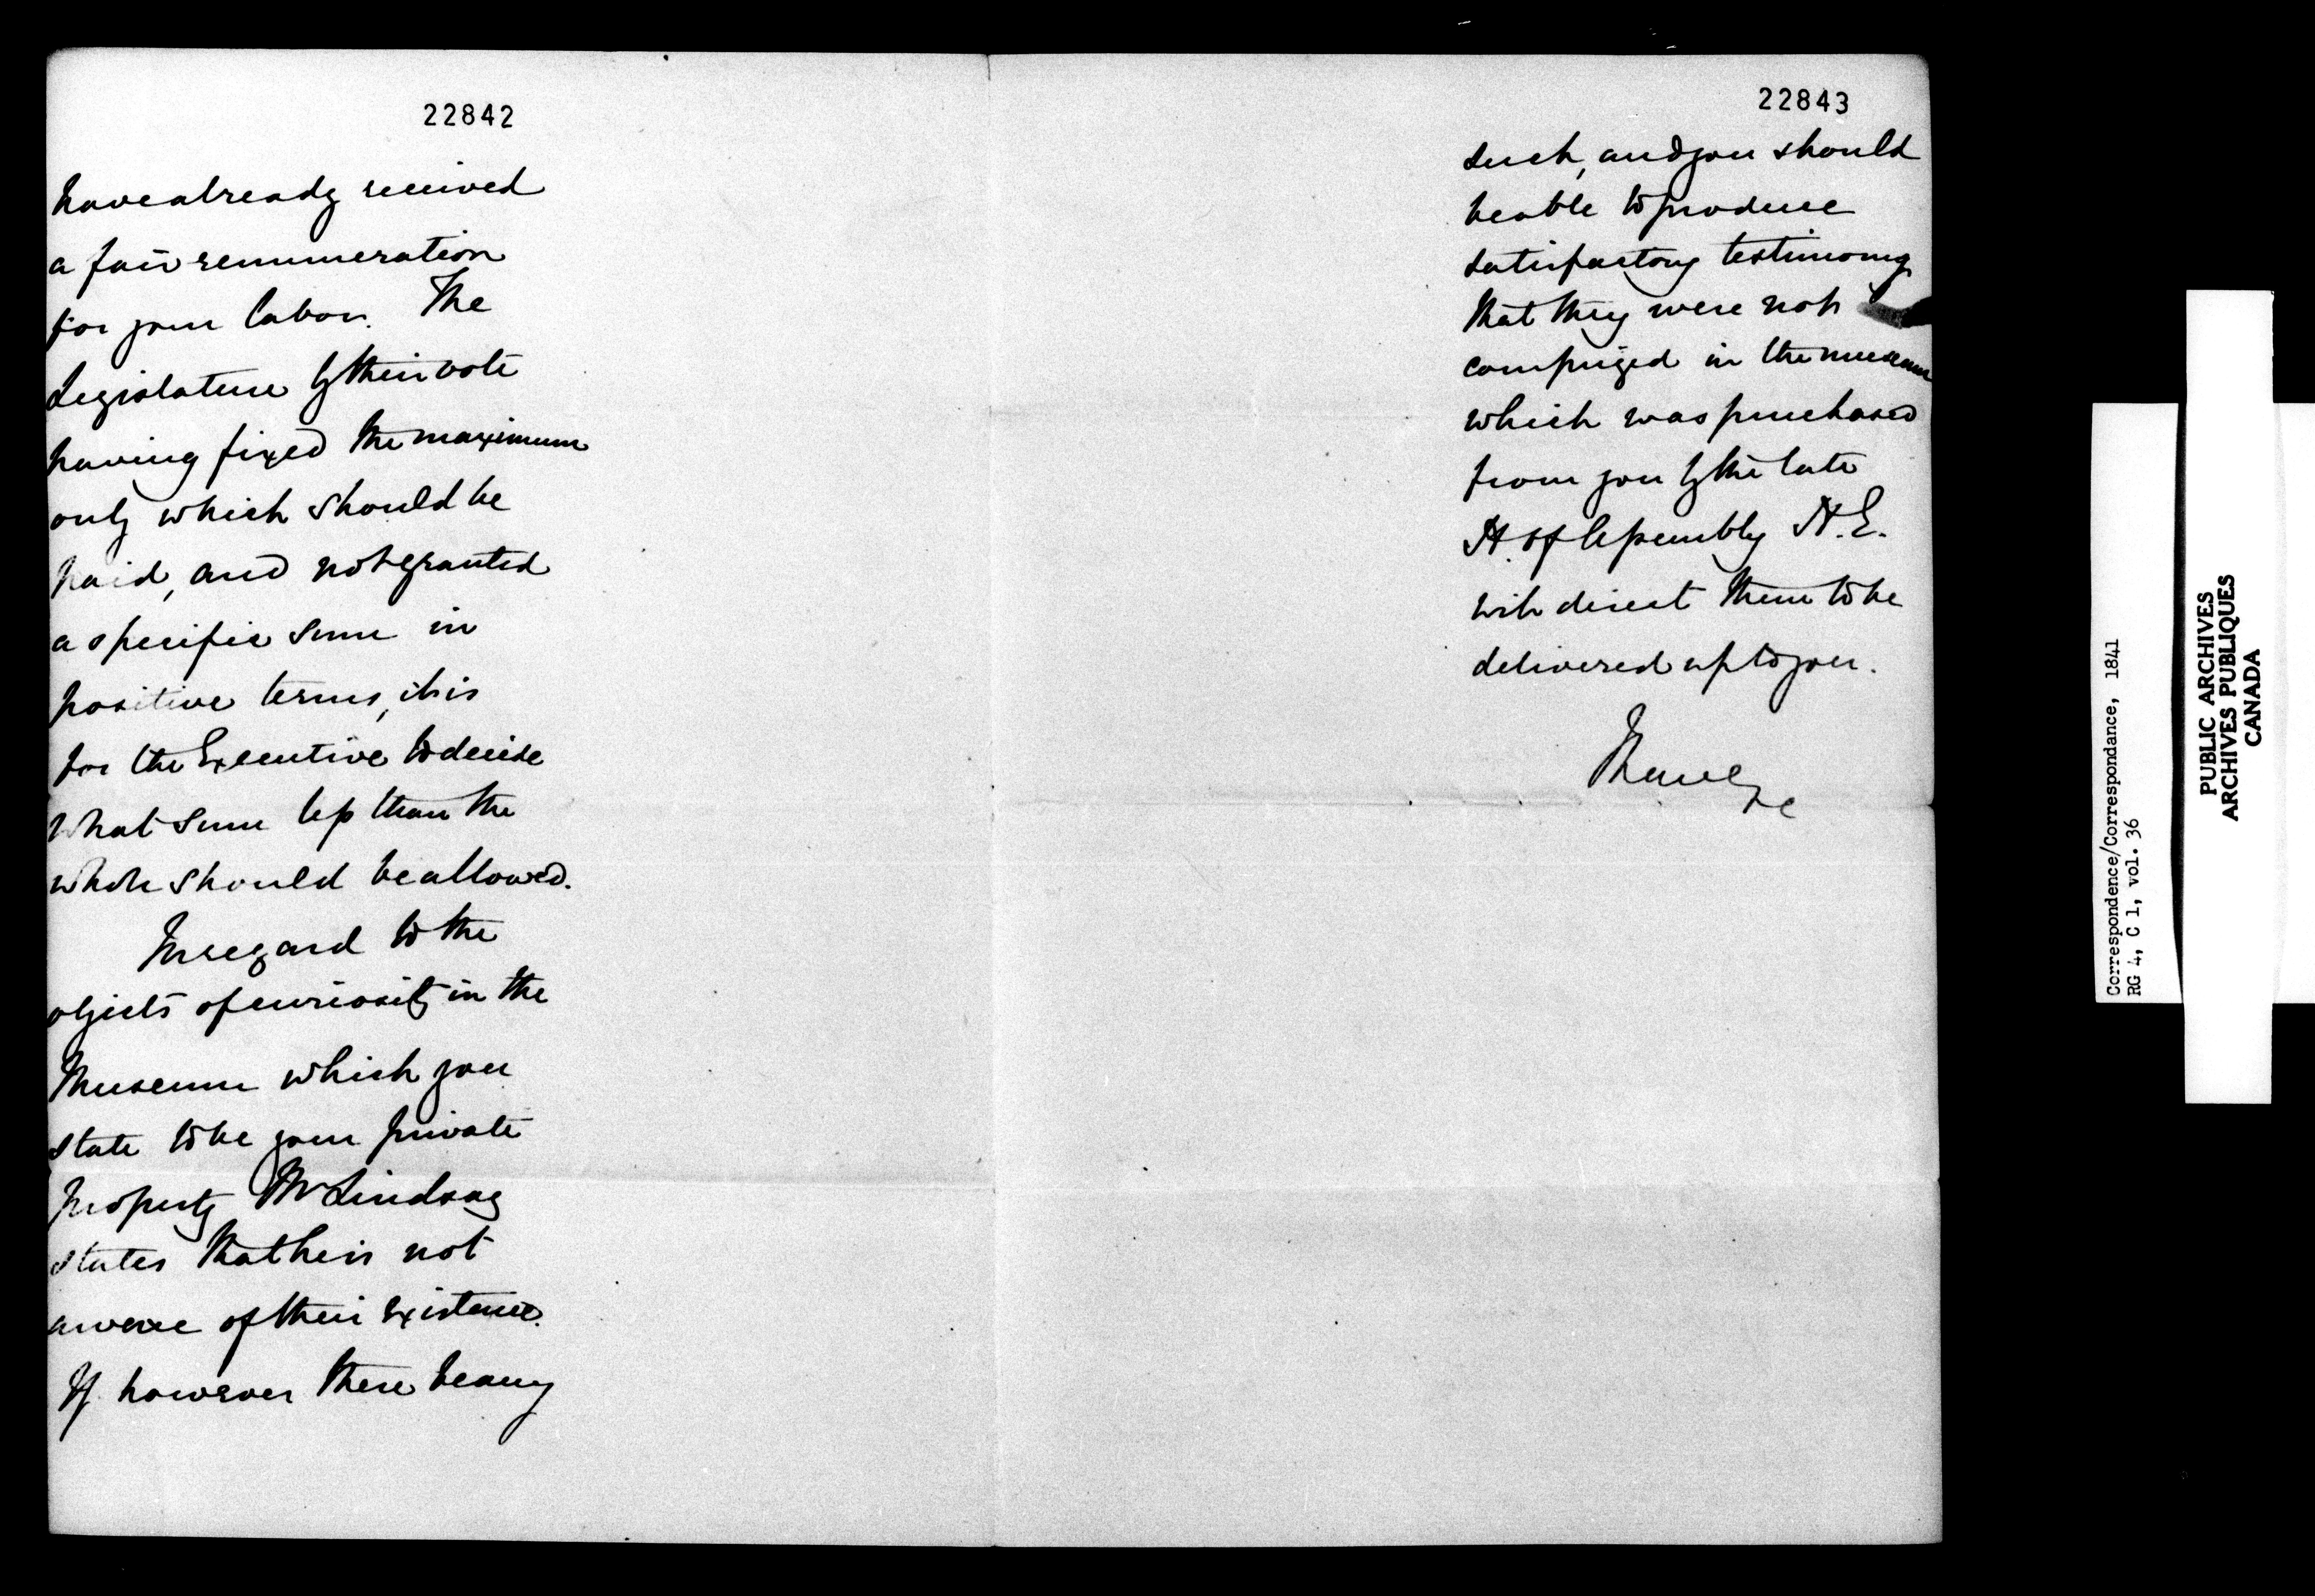 22842
have already received
a fair remuneration
for your labor. The
Legislature by their vote
having fixed the maximum
only which should be
paid, and not granted
a specific sum in
positive terms, it is
for the Executive to decide
what sum less than the
whole should be allowed.
In regard to the
objects of curiosity in the
Museum which you
state to be your private
property Mr Lindsay
states that he is not
aware of their existence.
If however there be any
22843
such, and you should
be able to produce
satisfactory testimony
that they were not
comprized in the museum
which was purchased
from you by the late
H. of Assembly H.E.
will direct them to be
delivered up to you.
I have &c
Correspondence/Correspondance, 1841
RG 4, C 1, vol. 36
PUBLIC ARCHIVES
ARCHIVES PUBLIQUES
CANADA